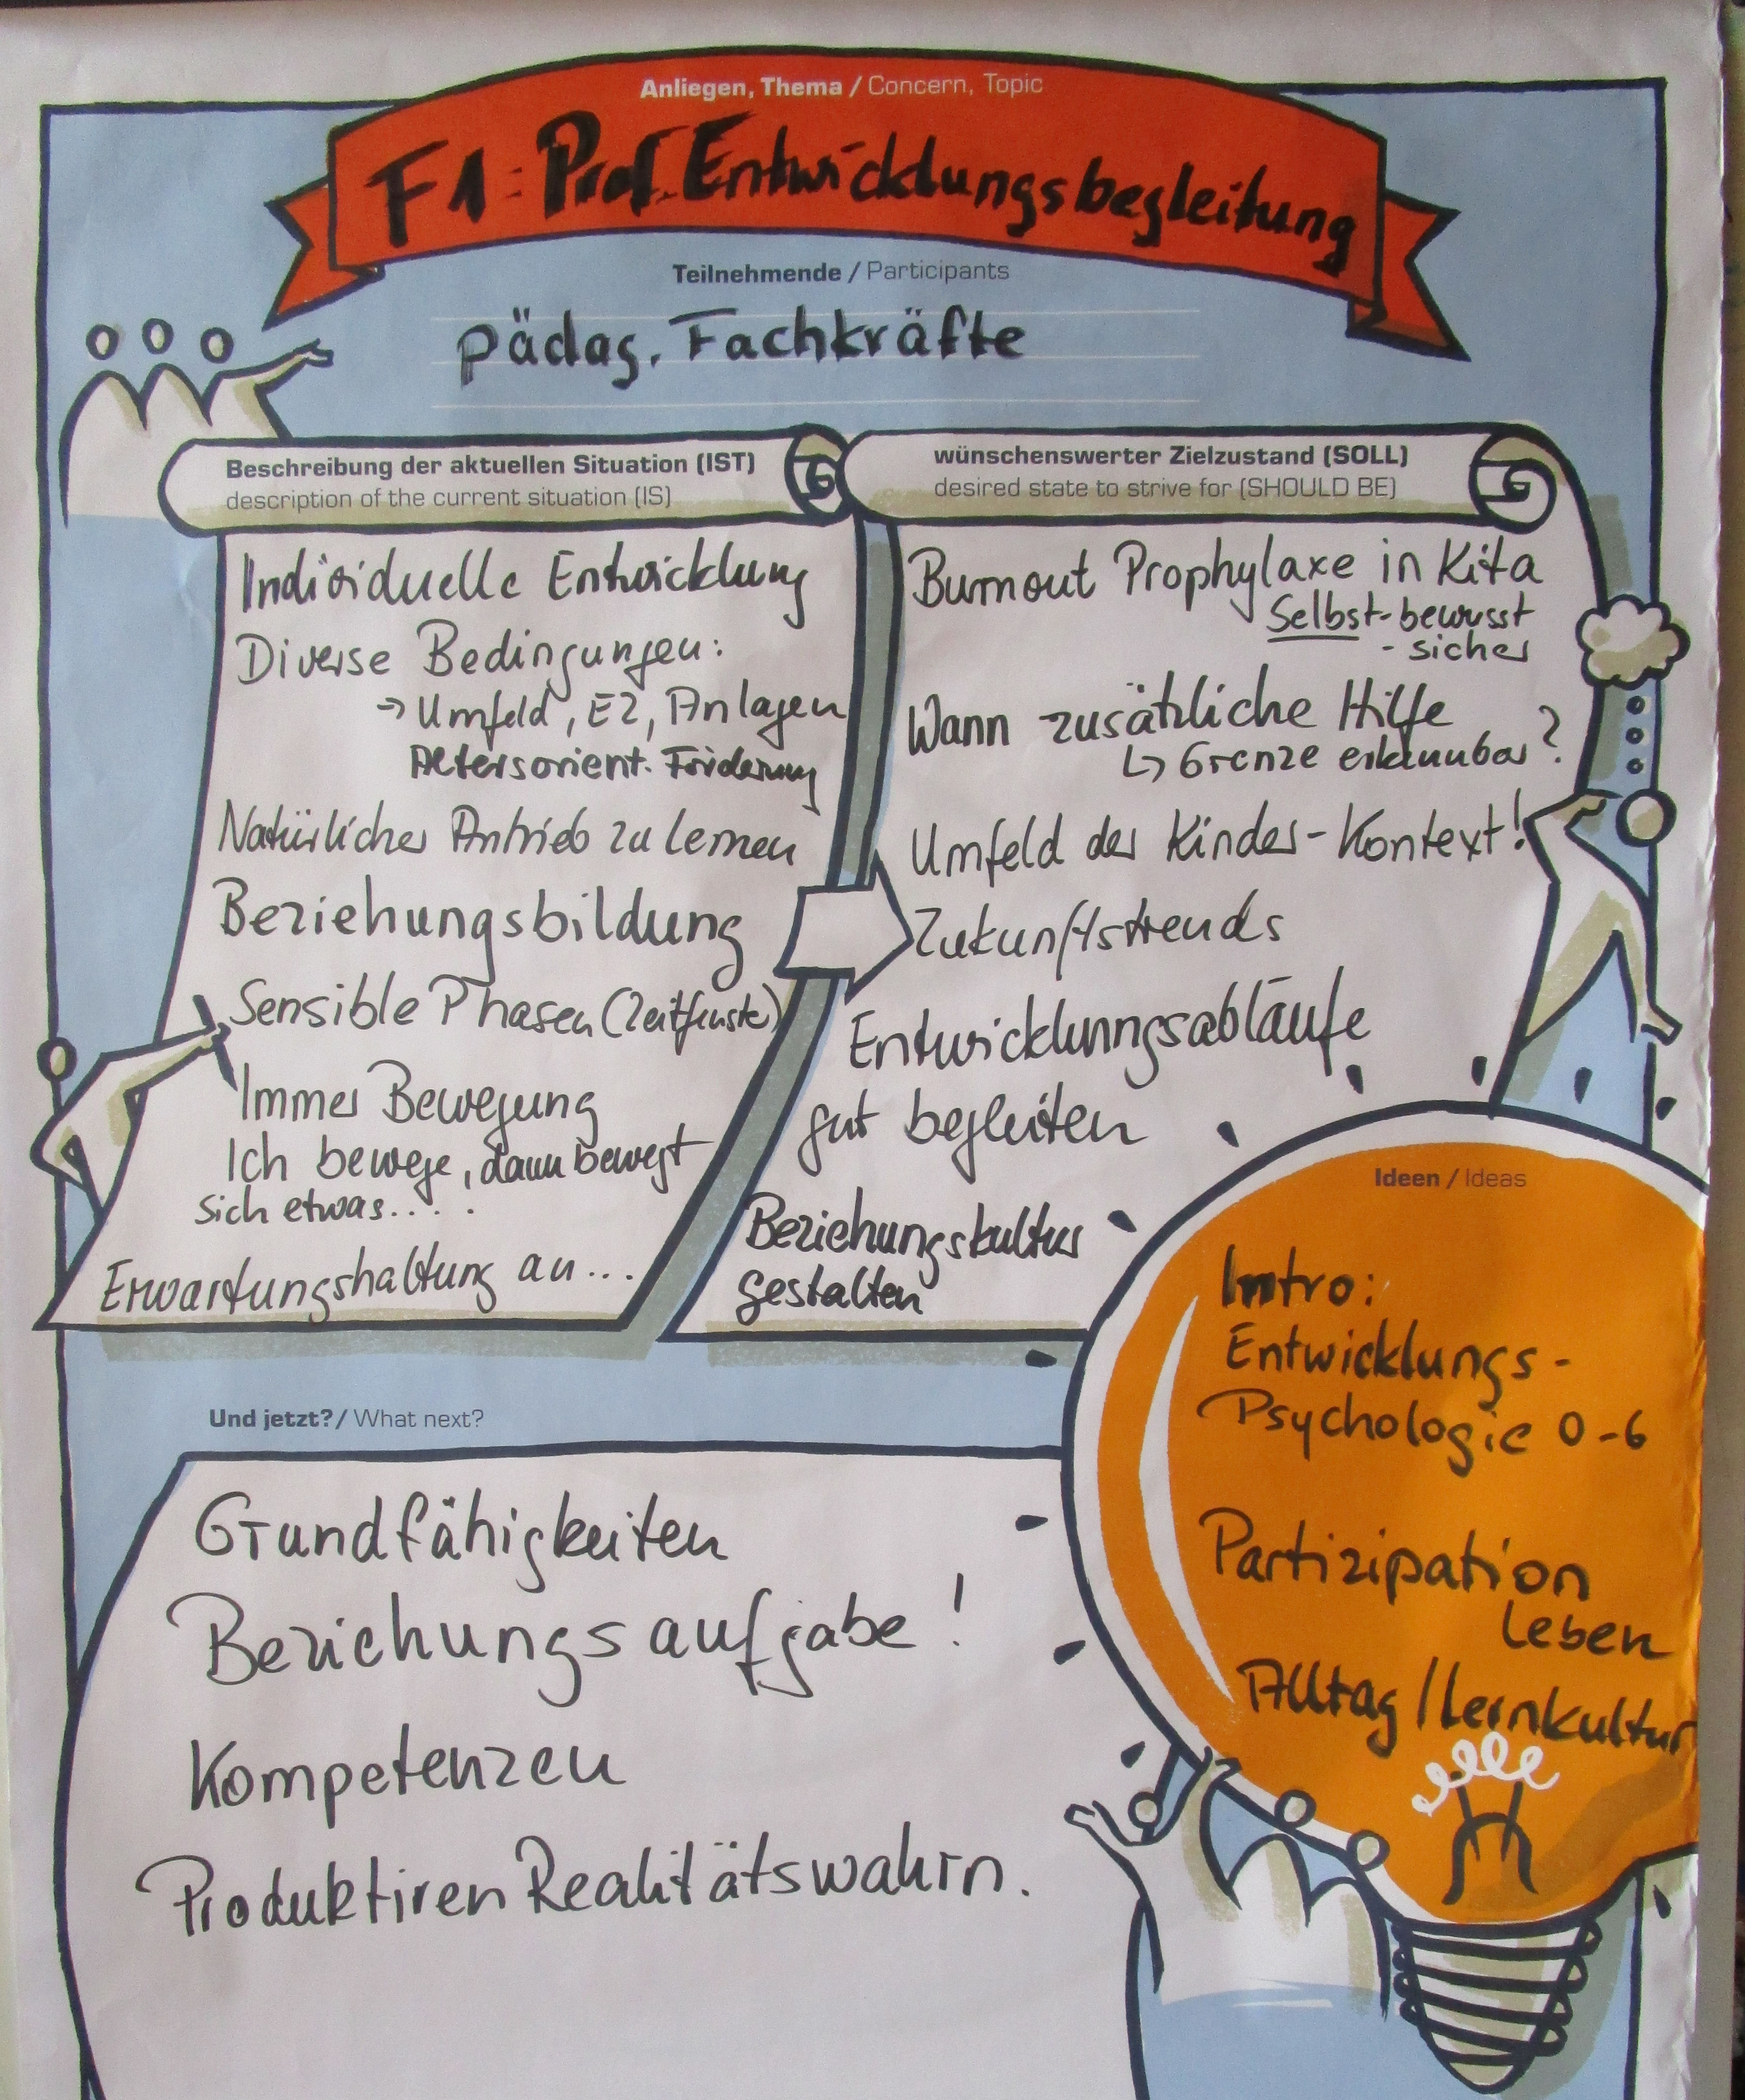 Anliegen, Thema / Concern, Topic
F1: Prof. Entwicklungsbegleitung
Teilnehmende / Participants
pädag. Fachkräfte
Beschreibung der aktuellen Situation (IST)
description of the current situation (IS)
Individuelle Entwicklung
Diverse Bedingungen:
→ Umfeld, EZ, Anlagen
Altersorient. Förderung
Natürlicher Antrieb zu lernen
Beziehungsbildung
Sensible Phasen (Zeitfenster)
Immer Bewegung
Ich bewege, dann bewegt
sich etwas....
Erwartungshaltung an...
wünschenswerter Zielzustand (SOLL)
desired state to strive for (SHOULD BE)
Burnout Prophylaxe in Kita
Selbst-bewusst
- sicher
Wann zusätzliche Hilfe
↳ Grenze erkennbar?
Umfeld der Kinder - Kontext!
Zukunftstrends
Entwicklungsabläufe
gut begleiten
Beziehungskultur
gestalten
Ideen / Ideas
Intro:
Entwicklungs-
Psychologie 0-6
Partizipation
leben
Alltag / Lernkultur
Und jetzt? / What next?
Grundfähigkeiten
Beziehungsaufgabe!
Kompetenzen
Produktiven Realitätswahrn.